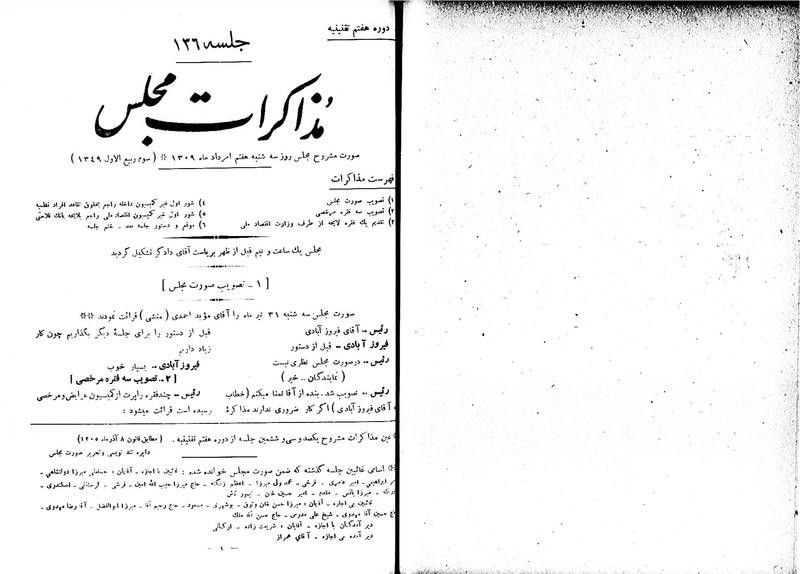 دوره هفتم تقنینیه
جلسه ۱۳۶
مذاکرات مجلس
صورت مشروح مجلس روز سه شنبه هفتم امرداد ماه ۱۳۰۹ * ( سوم ربیع الاول ۱۳۴۹ )
فهرست مذاکرات
۱) تصویب صورت مجلس
۲) تصویب سه فقره مرخصی
۳) تقدیم یك فقره لایحه از طرف وزارت اقتصاد ملی
۴) شور اول خبر کمیسیون داخله راجع بحقوق تقاعد افراد نظمیه
۵) شور اول خبر کمیسیون اقتصاد ملی راجع بلایحه بانك فلاحتی
۶) موقع و دستور جلسه بعد - ختم جلسه
مجلس یك ساعت و نیم قبل از ظهر بریاست آقای دادگر تشکیل گردید
[ ۱ ـ تصویب صورت مجلس ]
صورت مجلس سه شنبه ۳۱ تیر ماه را آقای مؤید احمدی ( منشی ) قرائت نمودند **
رئیس ـ آقای فیروز آبادی
فیروز آبادی ـ قبل از دستور
رئیس ـ در صورت مجلس نظری نیست
( نمایندگان ـ خیر )
رئیس ـ تصویب شد . بنده از آقا تمنا میکنم ( خطاب
آقای فیروز آبادی ) اگر کار ضروری ندارند مذاکرهٔ
قبل از دستور را برای جلسهٔ دیگر بگذاریم چون کار
زیاد داریم
فیروز آبادی ـ بسیار خوب
[ ۲ ـ تصویب سه فقره مرخصی ]
رئیس ـ چند فقره راپرت از کمیسیون عرایض و مرخصی
رسیده است قرائت میشود :
* عین مذاکرات مشروح یکصد و سی و ششمین جلسه از دوره هفتم تقنینیه . ( مطابق قانون ۸ آذر ماه ۱۳۰۵ )
دایره تند نویسی و تحریر صورت مجلس
** اسامی غائبین جلسه گذشته که ضمن صورت مجلس خوانده شده : غائبین با اجازه ـ آقایان : میرزا دولتشاهی ـ
امیر عامری ـ فرخی ـ محمد ولی میرزا ـ اعظم زنگنه ـ حاج میرزا حبیب الله امین ـ قرشی ـ لرستانی ـ اسکندری ـ
میرزا یانس ـ مقدم ـ امیر حسین خان ـ تیمور تاش
غائبین بی اجازه ـ آقایان : میرزا حسن خان وثوق ـ بوشهری ـ مسعود ـ حاج رحیم آقا ـ میرزا ابوالفضل ـ آقا رضا مهدوی ـ
حاج حسین آقا مهدوی ـ شیخ علی مدرس ـ حاج حسن آقا ملك
دیر آمدگان با اجازه ـ آقایان : شریعت زاده ـ اورنگی
دیر آمده بی اجازه ـ آقای همراز
ـ ۱ ـ